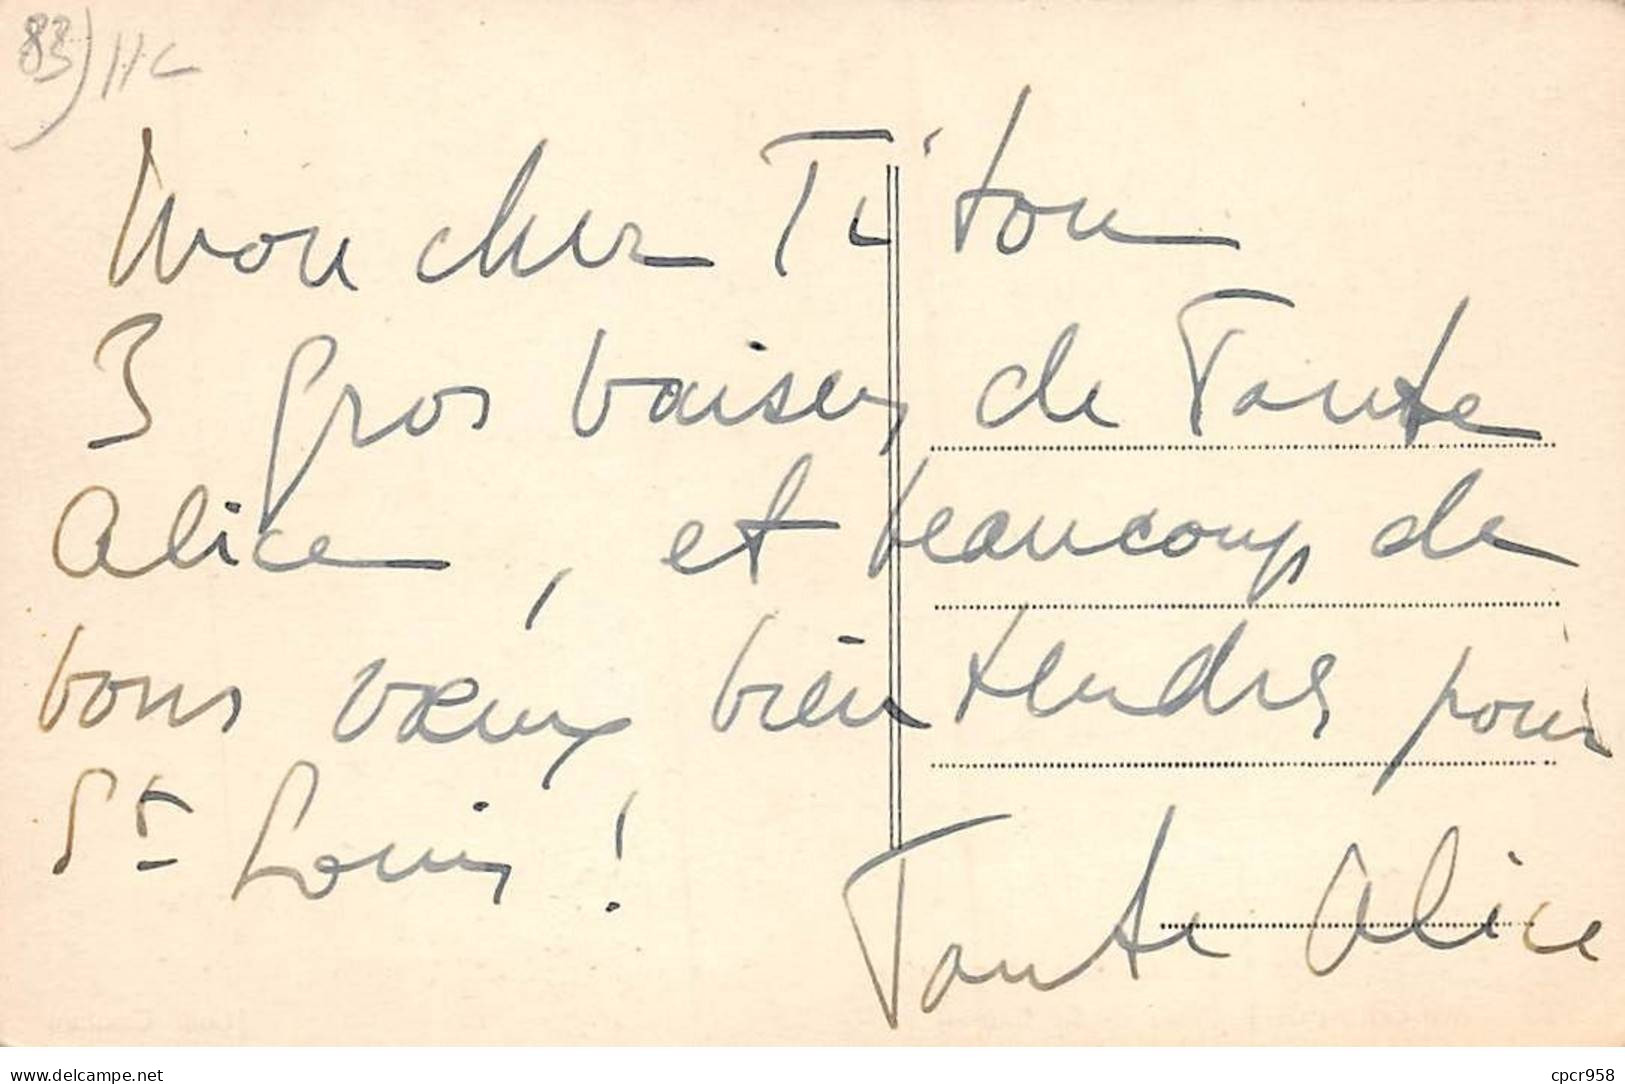 83) HC
Mon cher Ti'ton
3 gros baisers de Tante
Alice, et beaucoup de
bons vœux bien tendres pour
St Louis !
Tante Alice
www.delcampe.net
cpcr958